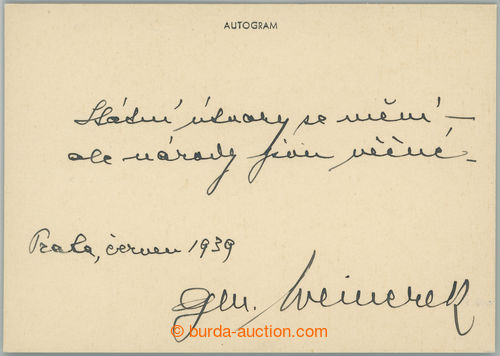 AUTOGRAM
Státní útvary se mění —
ale národy jsou věčné.
Praha, červen 1939
gen.
© burda-auction.com